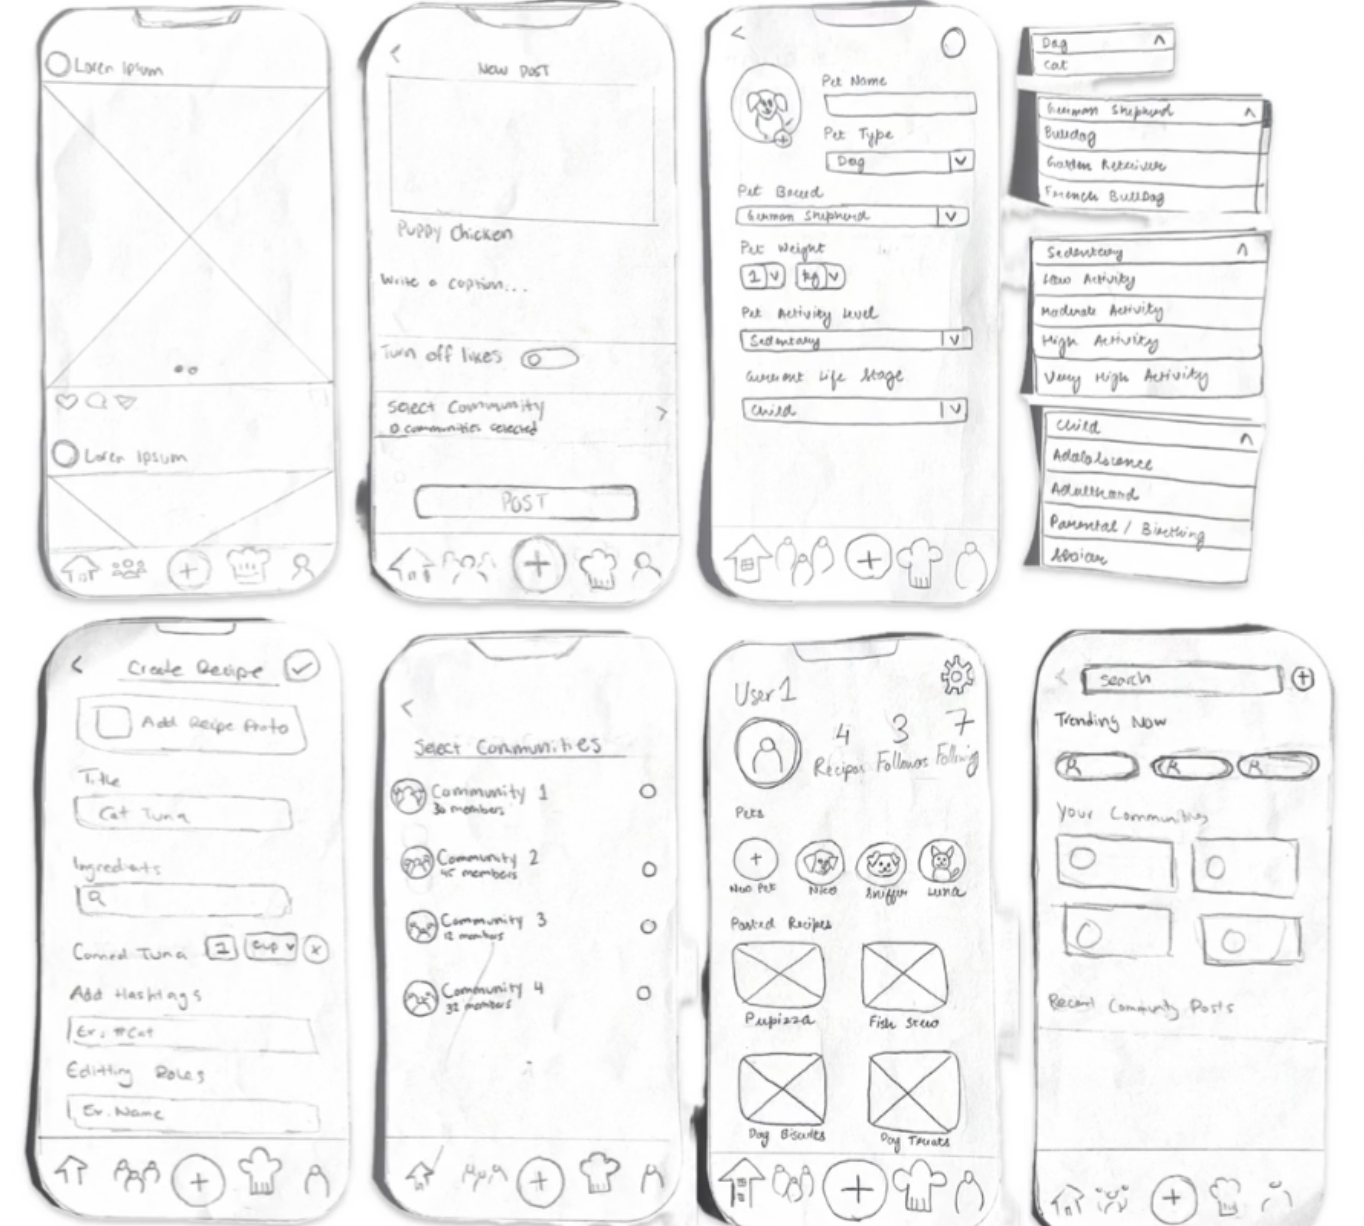 Loren Ipsum
Loren Ipsum
New Post
Puppy Chicken
Write a caption...
Turn off likes
Select Community
0 communities selected
POST
Pet Name
Pet Type
Dog
Pet Breed
German Shepherd
Pet Weight
1 kg
Pet Activity Level
Sedentary
Current Life Stage
Child
Dog
Cat
German Shepherd
Bulldog
Golden Retriever
French BullDog
Sedentary
Low Activity
Moderate Activity
High Activity
Very High Activity
Child
Adolescence
Adulthood
Parental / Birthing
Create Recipe
Add Recipe Photo
Title
Cat Tuna
Ingredients
Canned Tuna 1 cup x
Add Hashtags
Ex. #Cat
Editting Roles
Ex. Name
Select Communities
Community 1
30 members
Community 2
45 members
Community 3
12 members
Community 4
32 members
User 1
4 3 7
Recipes Followers Following
Pets
New Pet Nico Sniffer Luna
Posted Recipes
Pupizza Fish Stew
Dog Biscuits Dog Treats
Search
Trending Now
Your Communities
Recent Community Posts